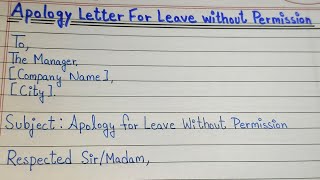 Apology Letter For Leave without Permission
To,
The Manager,
[Company Name],
[City].
Subject: Apology for Leave Without Permission
Respected Sir/Madam,